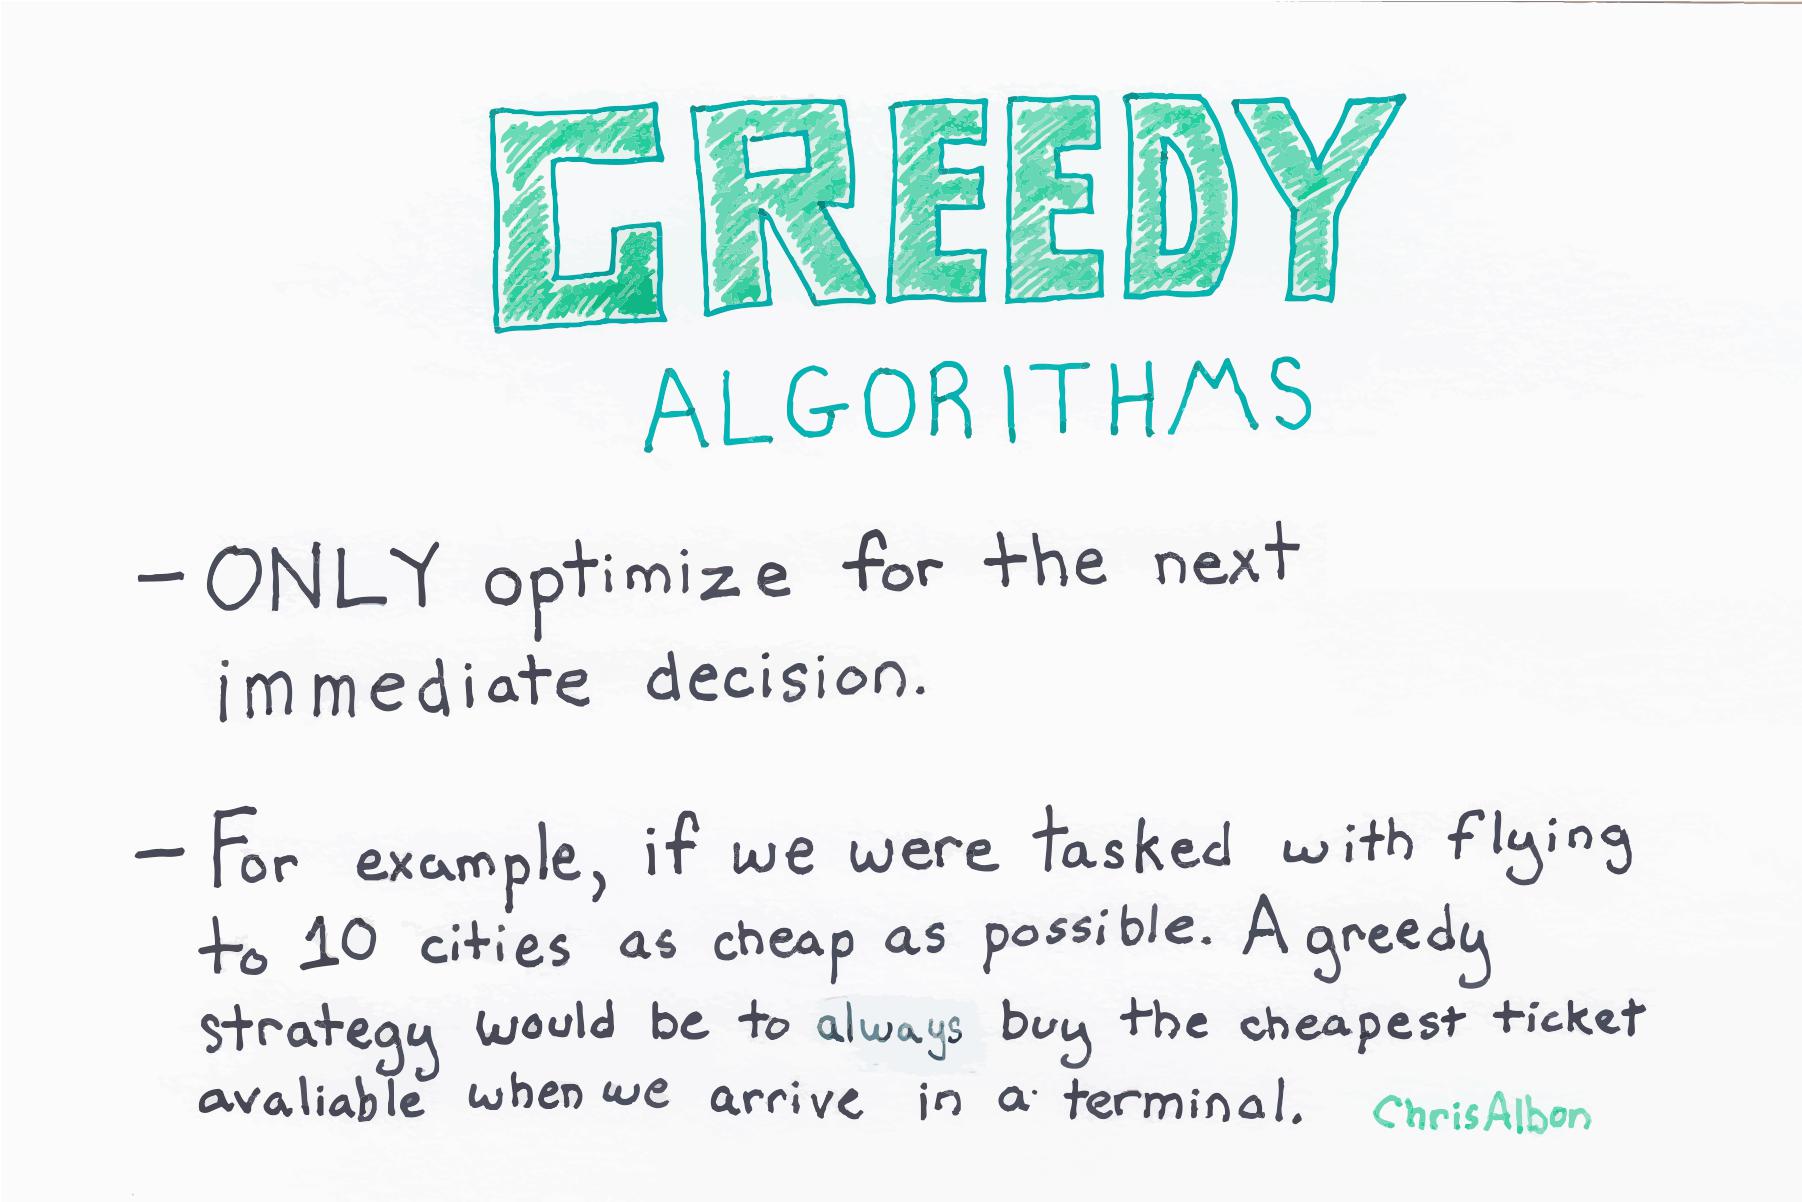 GREEDY
ALGORITHMS
- ONLY optimize for the next
immediate decision.
- For example, if we were tasked with flying
to 10 cities as cheap as possible. A greedy
strategy would be to always buy the cheapest ticket
avaliable when we arrive in a terminal.
ChrisAlbon